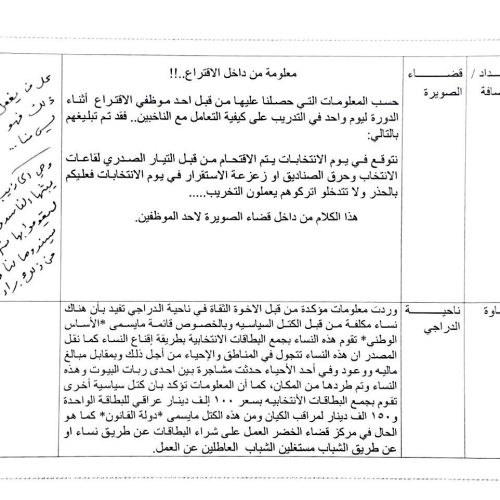 معلومة من داخل الاقتراع..!!
قضـــــاء
الصويرة
حسب المعلومات التي حصلنا عليها من قبل احد موظفي الاقتراع أثناء
الدورة ليوم واحد في التدريب على كيفية التعامل مع الناخبين.. فقد تم تبليغهم
بالتالي:
نتوقع في يوم الانتخابات يتم الاقتحام من قبل التيار الصدري لقاعات
الانتخاب وحرق الصناديق او زعزعة الاستقرار في يوم الانتخابات فعليكم
بالحذر ولا تتدخلو اتركوهم يعملون التخريب.....
هذا الكلام من داخل قضاء الصويرة لاحد الموظفين.
ناحيــــة
الدراجي
وردت معلومات مؤكدة من قبل الاخوة الثقاة في ناحية الدراجي تفيد بأن هناك
نساء مكلفة من قبل الكتل السياسيه وبالخصوص قائمة مايسمى *الأساس
الوطني* تقوم هذه النساء بجمع البطاقات الانتخابية بطريقة إقناع النساء كما نقل
المصدر ان هذه النساء تتجول في المناطق والإحياء من أجل ذلك وبمقابل مبالغ
ماليه ووعود وفي أحد الأحياء حدثت مشاجرة بين احدى ربات البيوت وهذه
النساء وتم طردها من المكان، كما أن المعلومات تؤكد بان كتل سياسية أخرى
تقوم بجمع البطاقات الأنتخابيه بسعر ١٠٠ إلف دينار عراقي للبطاقة الواحدة
و١٥٠ الف دينار لمراقب الكيان ومن هذه الكتل مايسمى *دولة القانون* كما هو
الحال في مركز قضاء الخضر العمل على شراء البطاقات عن طريق نساء او
عن طريق الشباب مستغلين الشباب العاطلين عن العمل.